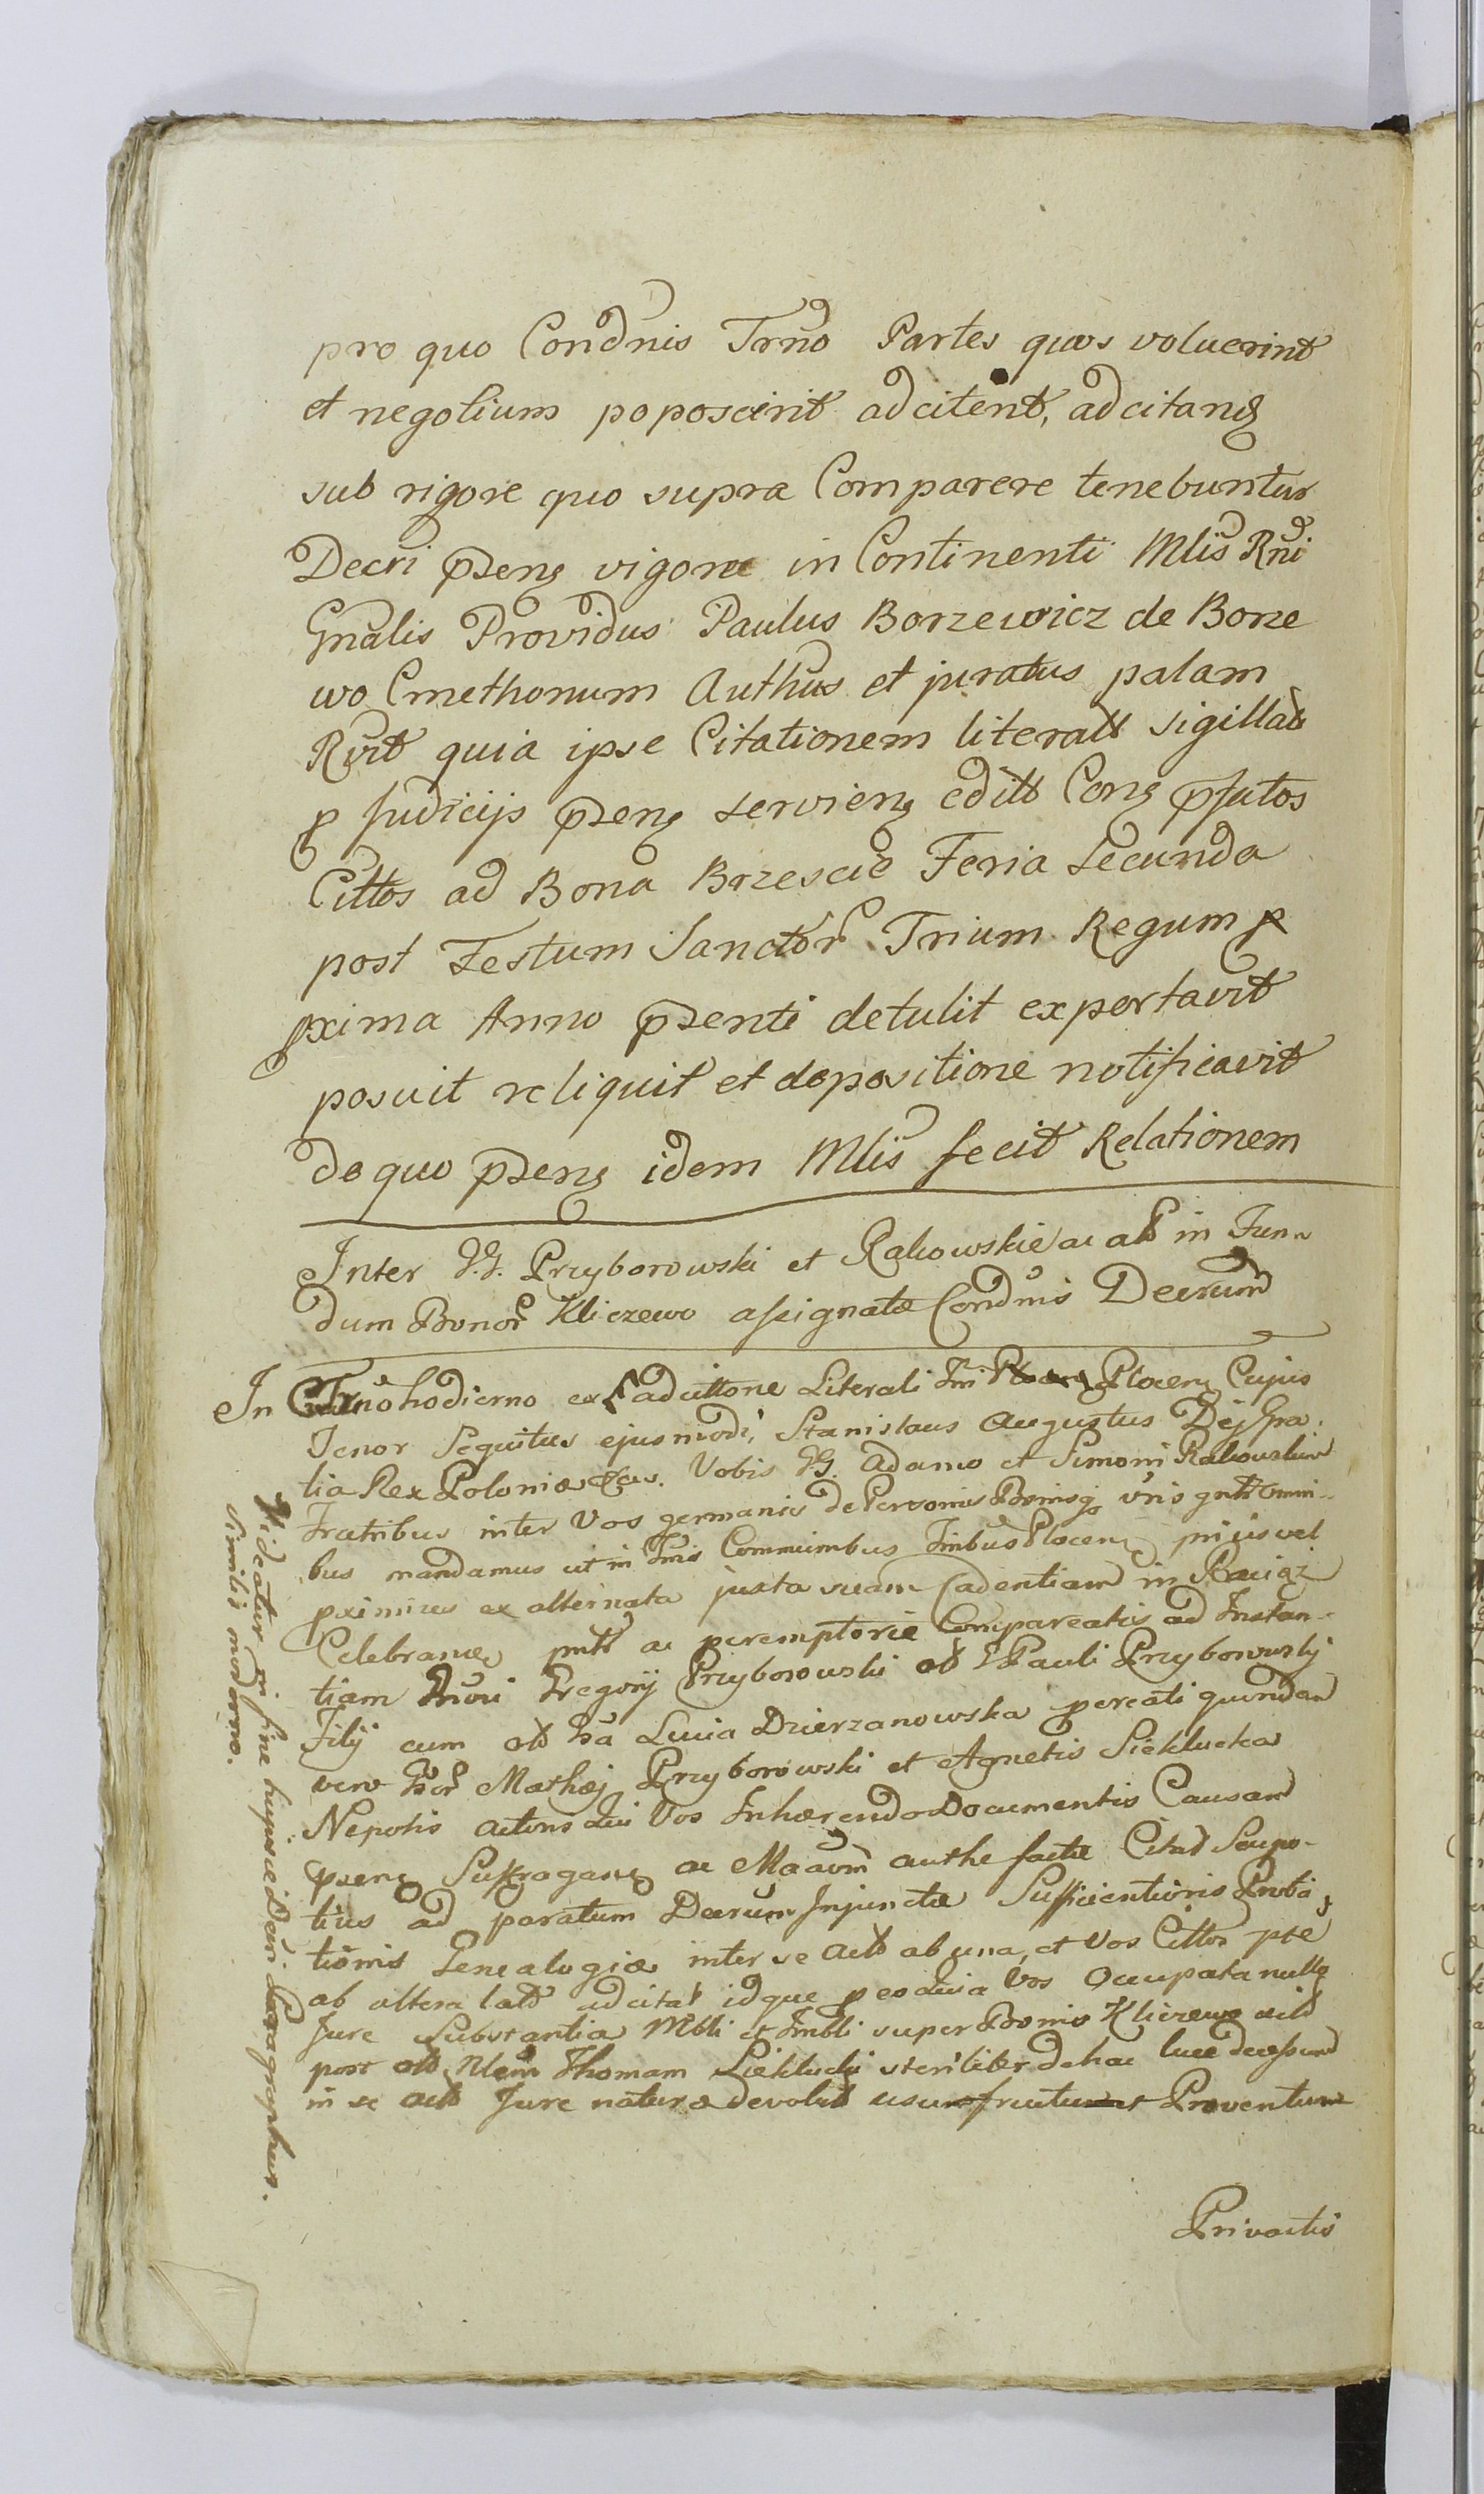 pro quo Condnis Trno Partes quos voluerint
et negotium poposcerit adcitent, adcitang
sub rigore quo supra Comparere tenebuntur
Decri pseng vigore in Continenti Mlis Rni
Gnalis Providus Paulus Borzewicz de Borze
wo Cmethonum Authus et juratus palam
Rvit quia ipse Citationem literall sigillat
p Judicijs pseng servieng editt Cong pfatos
Cittos ad Bona Brzescie Feria Secunda
post Festum Sanctor Trium Regum p
xima Anno psenti detulit exportavit
posuit reliquit et depositione notificavit
de quo pseng idem Mlis fecit Relationem
Inter G.G. Przyborowski et Rakowskie ac alt in Fun
dum Bonor Kliczewo assignatæ Condnis Decrum
In Trno hodierno ex adcittone Literali Plocens Cujus
Tenor Sequitur ejusmodi, Stanislaus Augustus Dej Gra
tia Rex Poloniæ Vobis GG. Adamo et Simoni Rakowskim
Fratribus inter Vos germanis de Personis Bonisq vris gntt omni
bus mandamus ut in Communibus Plocens prijs vel
pximius ex alternata juxta suam Cadentiam in Raciąz
Celebrang pntt ac peremptorie Compareatis ad Instan-
tiam Gregorij Przyborowski olt G Pauli Przyborowskj
Filij cum olt Ga Lucia Dzierzanowska percati quondam
vero Gor Mathæj Przyborowski et Agnetis Sieklucka
Nepotis actoris qui Vos Inhærendo Documentis Causam
pseng Suffragang ac Maavm authe factæ Citad Seupo-
tius ad paratum Decrum Injunctæ Sufficientioris Proba
tionis Genealogiæ inter se Actt ab una, et Vos Cittos pte
ab altera latt adcitat idque p eo quia Vos Occupata nullo
Jure Substantia Mbli et Imbli super Bonis Kliczewo
post olt Nlem Thomam Sieklucki steriliter de hac luce decessum
in se actt Jure naturæ devolut usumfructum et Proventum
Privatis
Videatur in fine hujus Paragraphus.
similis modorno.